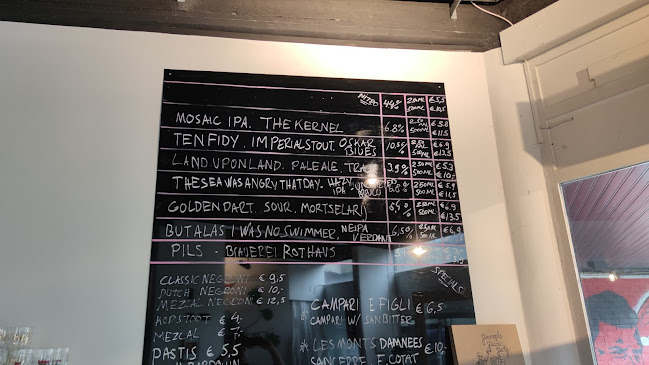 NITRO 4.4% 250ML €5,5
MOSAIC IPA. THE KERNEL 6.8% 500ML €5.8 €11,5
TEN FIDY. IMPERIAL STOUT. OSKAR BLUES 10.5% 500ML €6.9 €12,5
LAND UPON LAND. PALE ALE. TRACK 3.9% 250ML 500ML €10,-
THE SEA WAS ANGRY THAT DAY. HAZY IPA 250ML 500ML €5.9 €11,5
GOLDEN DART. SOUR. MORTSELARIJ 6.4% 250ML 500ML €6.9 €13,5
BUT ALAS I WAS NO SWIMMER. NEIPA VERDANT 6,5% 250ML €6.9
PILS - BRAUEREI ROTHAUS
SPECIALS
CLASSIC NEGRONI €9,5
DUTCH NEGRONI €10,-
MEZCAL NEGRONI €12,5
KOPSTOOT €4-
MEZCAL €7-
PASTIS €5,5
CAMPARI E FIGLI €6,5
CAMPARI W/ SANBITTER
* LES MONTS DAMNEES €10-
SANCERRE F. COTAT